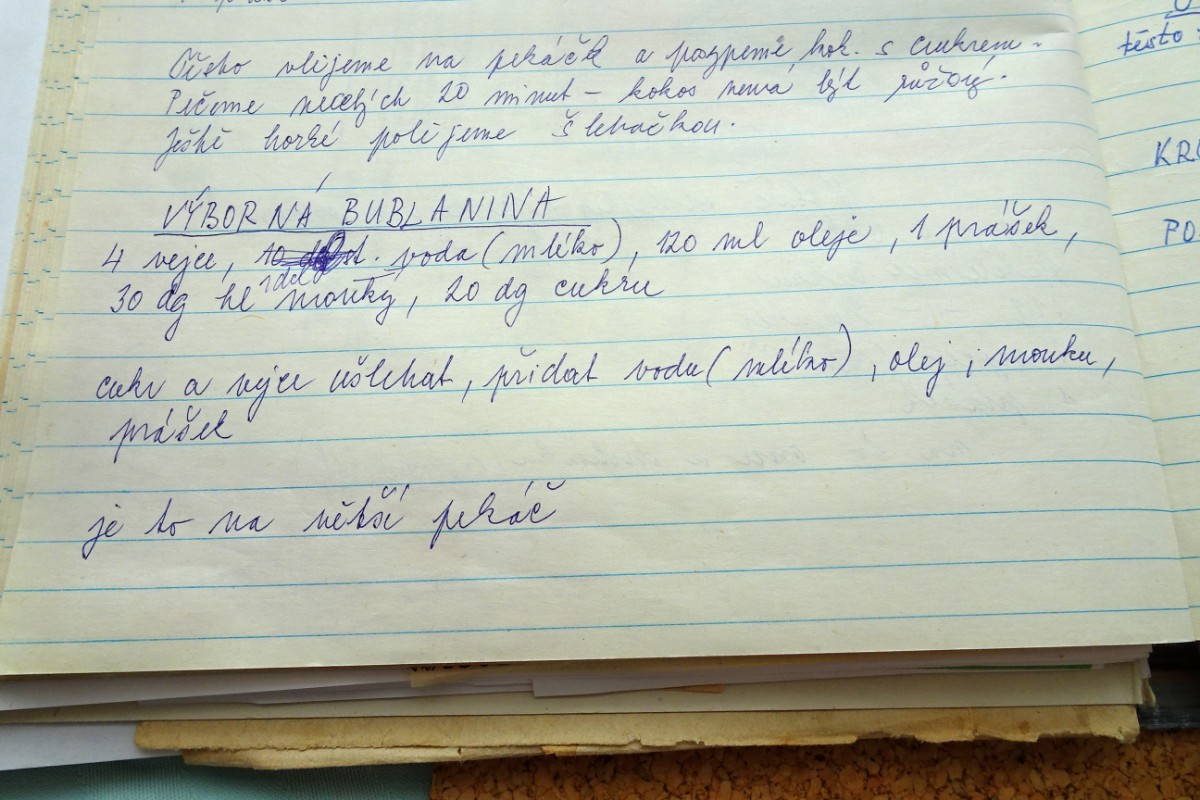 vlijeme na pekáček a posypeme kok. s cukrem.
Pečeme necelých 20 minut – kokos nemá být růžový.
Ještě horké polijeme šlehačkou.
VÝBORNÁ BUBLANINA
4 vejce, voda (mléko), 120 ml oleje, 1 prášek,
1 dcl
30 dg hl mouky, 20 dg cukru
cukr a vejce ušlehat, přidat vodu (mléko), olej, mouku,
prášek
je to na větší pekáč
těsto:
KRÉ
PO